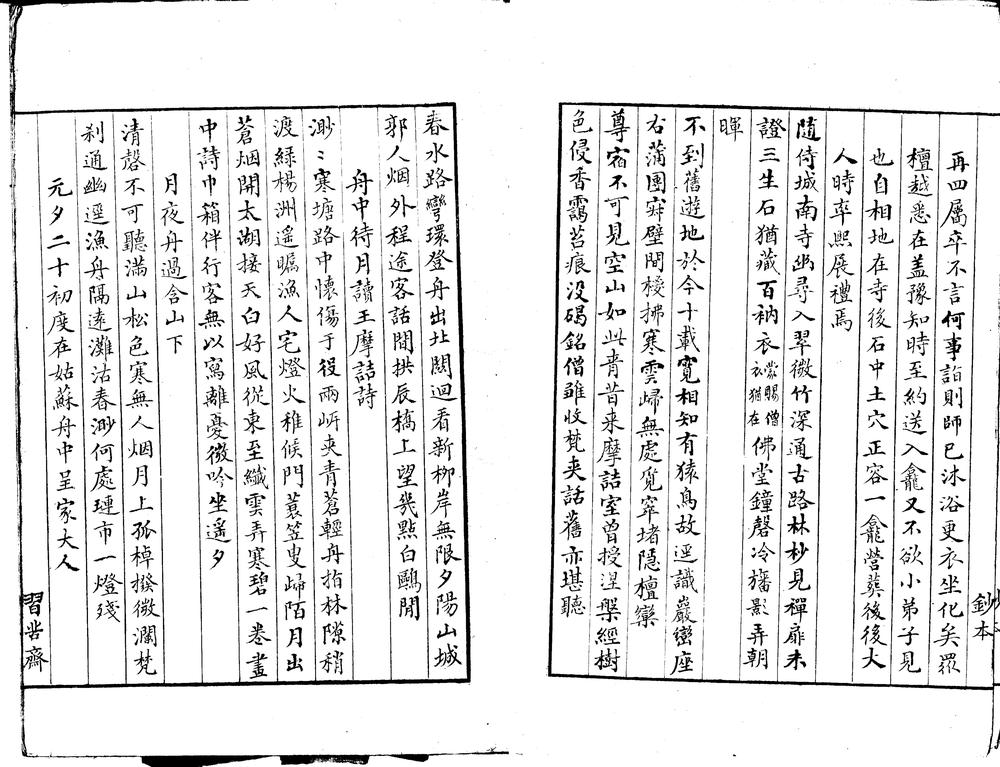 再四屬卒不言何事詣則師已沐浴更衣坐化矣眾
檀越悉在蓋豫知時至約送入龕又不欲小弟子見
也自相地在寺後石中土穴正容一龕營葬後後大
人時率熙展禮焉
隨侍城南寺幽尋入翠微竹深通古路林杪見禪扉未
證三生石猶藏百衲衣蒙賜僧衣猶在佛堂鐘磬冷旛影弄朝
暉
不到舊遊地於今十載寬相知有猿鳥故逕識巖巒座
右蒲團寂壁間椶拂寒雲歸無處覓窣堵隱檀欒
尊宿不可見空山如此青昔來摩詰室曾授涅槃經樹
色侵香靄苔痕没碣銘僧雖收梵夾話舊亦堪聽
鈔本
春水路彎環登舟出北關迴看新柳岸無限夕陽山城
郭人烟外程途客話間拱辰橋上望幾點白鷗閒
舟中待月讀王摩詰詩
渺〻寒塘路中懷傷于役兩岍夾青蒼輕舟指林隙稍
渡綠楊洲遥矚漁人宅燈火稚候門蓑笠叟歸陌月出
蒼烟開太湖接天白好風從東至纖雲弄寒碧一卷畫
中詩巾箱伴行客無以寫離憂微吟坐遥夕
月夜舟過含山下
清磬不可聽滿山松色寒無人烟月上孤棹撥微瀾梵
刹通幽逕漁舟隔遠灘沽春渺何處璉市一燈殘
元夕二十初度在姑蘇舟中呈家大人
習苦齋